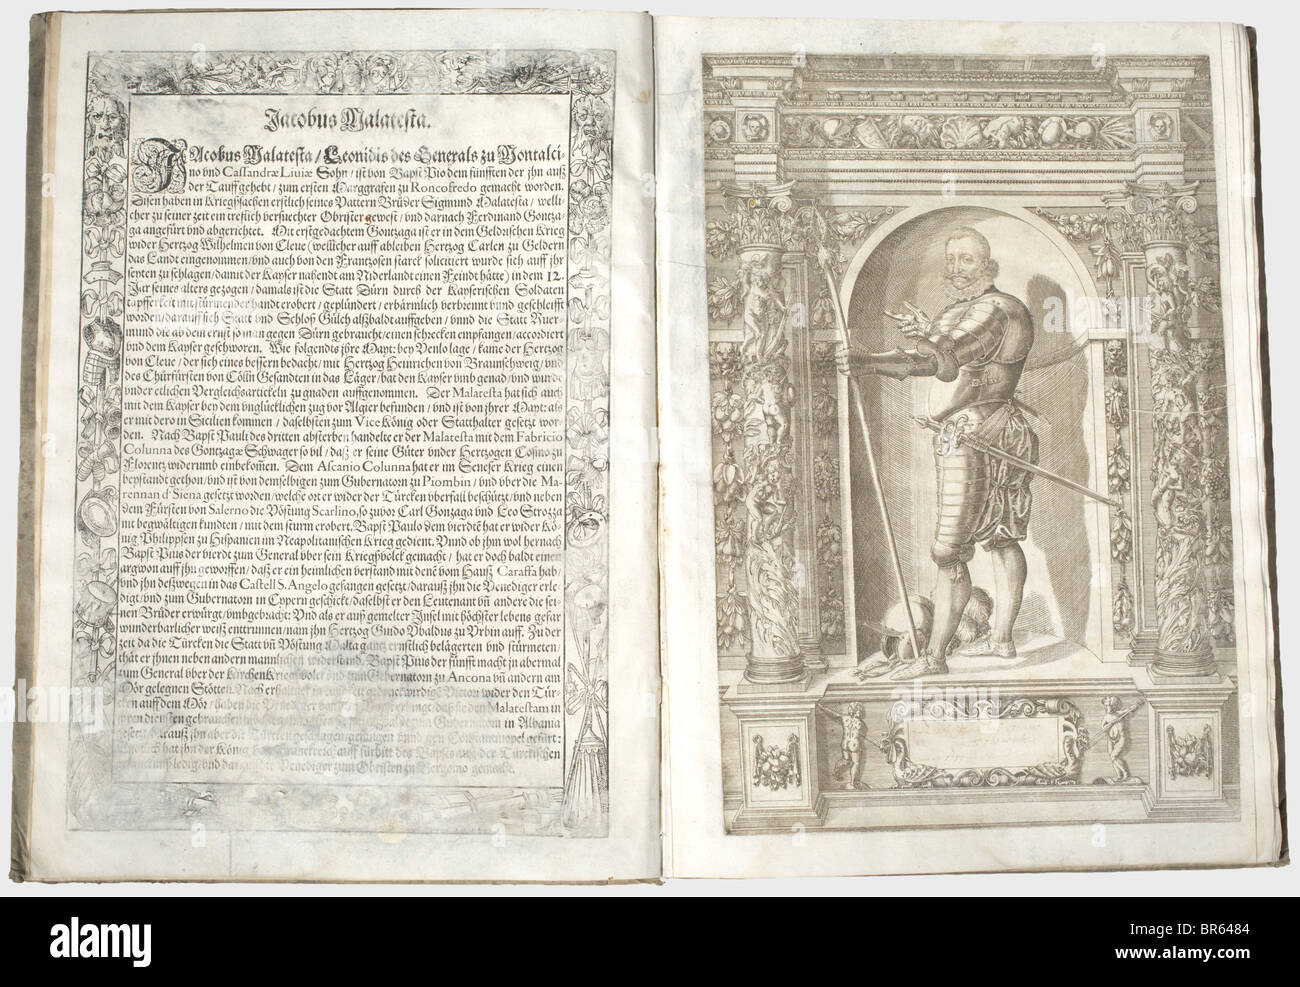 Jacobus Malatesta.
JAcobus Malatesta / Leonidis des Generals zu Montalci-
no vnd Cassandræ Liuiæ Sohn / ist von Bapst Pio dem fünfften der jhn auß
der Tauff gehebt / zum ersten Marggrafen zu Roncofredo gemacht worden.
Disen haben in Kriegßsachen erstlich seines Vattern Brüder Sigmund Malatesta / welli-
cher zu seiner zeit ein treflich versuechter Obrister gewest / vnd darnach Ferdinand Gontza-
ga angefürt vnd abgerichtet. Mit erstgedachtem Gonzaga ist er in dem Geldrischen Krieg
wider Hertzog Wilhelmen von Cleue (wellicher auff ableiben Hertzog Carlen zu Geldern
das Landt eingenommen / vnd auch von den Frantzosen starck solicitiert wurde sich auff jhr
seyten zu schlagen / damit der Kayser nahendt am Niderlandt einen Feindt hätte) in dem 12.
Jar seines alters gezogen / damals ist die Statt Dürn durch der Kayserischen Soldaten
tapfferkeit mit stürmender handt erobert / geplündert / erbärmlich verbrennt vnnd geschleifft
worden / darauff sich Statt vnd Schloß Gülch alßbaldt auffgeben / vnnd die Statt Ruer-
mund die ab dem ernst so man gegen Dürn gebraucht / einen schrecken empfangen / accordiert
vnd dem Kayser geschworen. Wie folgendts jhre Mayt: bey Venlo lage / kame der Hertzog
von Cleue / der sich eines bessern bedacht / mit Hertzog Heinrichen von Braunschweig / vnd
des Chürfürsten von Cölln Gesandten in das Läger / bat den Kayser vmb genad / vnd wurde
vnder etlichen Vergleichsartickeln zu gnaden auffgenommen. Der Malatesta hat sich auch
mit dem Kayser bey dem vnglücklichen zug vor Algier befunden / vnd ist von jhrer Mayt: als
er mit dero in Sicilien kommen / daselbsten zum Vice König oder Statthalter gesetzt wor-
den. Nach Bapst Pauli des dritten absterben handelte er der Malatesta mit dem Fabricio
Colunna des Gontzagæ Schwager so vil / daß er seine Güter vnder Hertzogen Cosmo zu
Florentz widerumb einbekommen. Dem Ascanio Colunna hat er im Seneser Krieg einen
beystandt gethon / vnd ist von demselbigen zum Gubernatorn zu Piombin / vnd vber die Ma-
rennan d' Siena gesetzt worden / welche ort er wider der Türcken vberfall beschützt / vnd neben
dem Fürsten von Salerno die Vöstung Scarlino, so zuvor Carl Gonzaga vnd Leo Strozza
nit begwältigen kundten / mit dem sturm erobert. Bapst Paulo dem vierdtē hat er wider Kö-
nig Philippsen zu Hispanien im Neapolitanischen Krieg gedient. Vnnd ob jhn wol hernach
Bapst Pius der vierdt zum General vber sein Kriegßvölck gemacht / hat er doch baldt einen
argwon auff jhn geworffen / daß er ein heimlichen verstand mit denē vom Hauß Caraffa hab /
vnd jhn deßwegen in das Castell S. Angelo gefangen gesetzt / darauß jhn die Venediger erle-
digt / vnd zum Gubernatorn in Cypern geschickt / daselbst er den Leutenant vñ andere die sei-
nen Brüder erwürgt / vmbgebracht: Vnd als er auß gemelter Insel mit höchster lebens gefar
wunderbarlicher weiß enttrunnen / nam jhn Hertzog Guido Vbaldus zu Vrbin auff. Zu der
zeit da die Türcken die Statt vñ Vöstung Malta gantz ernstlich belägerten vnd stürmeten /
thät er jhnen neben andern mannlichen widerstand. Bapst Pius der fünfft macht jn abermal
zum General vber der Kirchen Kriegßvolck vnd zum Gubernatorn zu Ancona vñ andern am
Mör gelegnen Stötten. Nach erhaltner in Victori wider den Tür-
cken auff dem Mör / haben die Venediger daß sie den Malatestam in
jhren diensten gebrauchen Gubernatorn in Albania
gesetzt / darauß jhn aber die Türcken gefangen vnnd gen Constantinopel gefürt:
hat jhn der König auff fürbitt des Bapsts auß der Türckischen
ledig / vnd die Venediger zum Obristen zu Bergomo gemacht.
alamy
Image ID: BR6484
www.alamy.com